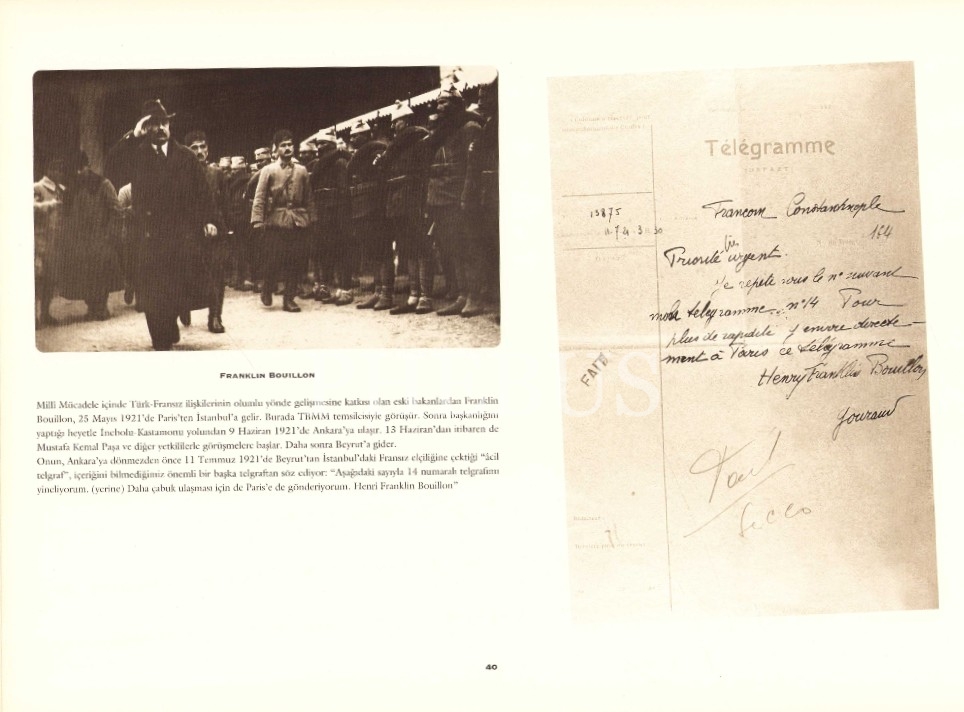 FRANKLIN BOUILLON
Milli Mücadele içinde Türk-Fransız ilişkilerinin olumlu yönde gelişmesine katkısı olan eski bakanlardan Franklin
Bouillon, 25 Mayıs 1921'de Paris'ten İstanbul'a gelir. Burada TBMM temsilcisiyle görüşür. Sonra başkanlığını
yaptığı heyetle İnebolu-Kastamonu yolundan 9 Haziran 1921'de Ankara'ya ulaşır. 13 Haziran'dan itibaren de
Mustafa Kemal Paşa ve diğer yetkililerle görüşmelere başlar. Daha sonra Beyrut'a gider.
Onun, Ankara'ya dönmezden önce 11 Temmuz 1921'de Beyrut'tan İstanbul'daki Fransız elçiliğine çektiği "âcil
telgraf", içeriğini bilmediğimiz önemli bir başka telgraftan söz ediyor: "Aşağıdaki sayıyla 14 numaralı telgrafımı
yineliyorum. (yerine) Daha çabuk ulaşması için de Paris'e de gönderiyorum. Henri Franklin Bouillon"
Télégramme
13875
Francom Constantinople
164
Priorité très urgent.
Je répète sous le n° suivant
mon télégramme n° 14 Pour
plus de rapidité j'envoie directe-
ment à Paris ce télégramme
Henry Franklin Bouillon
Gouraud
FAIT
40